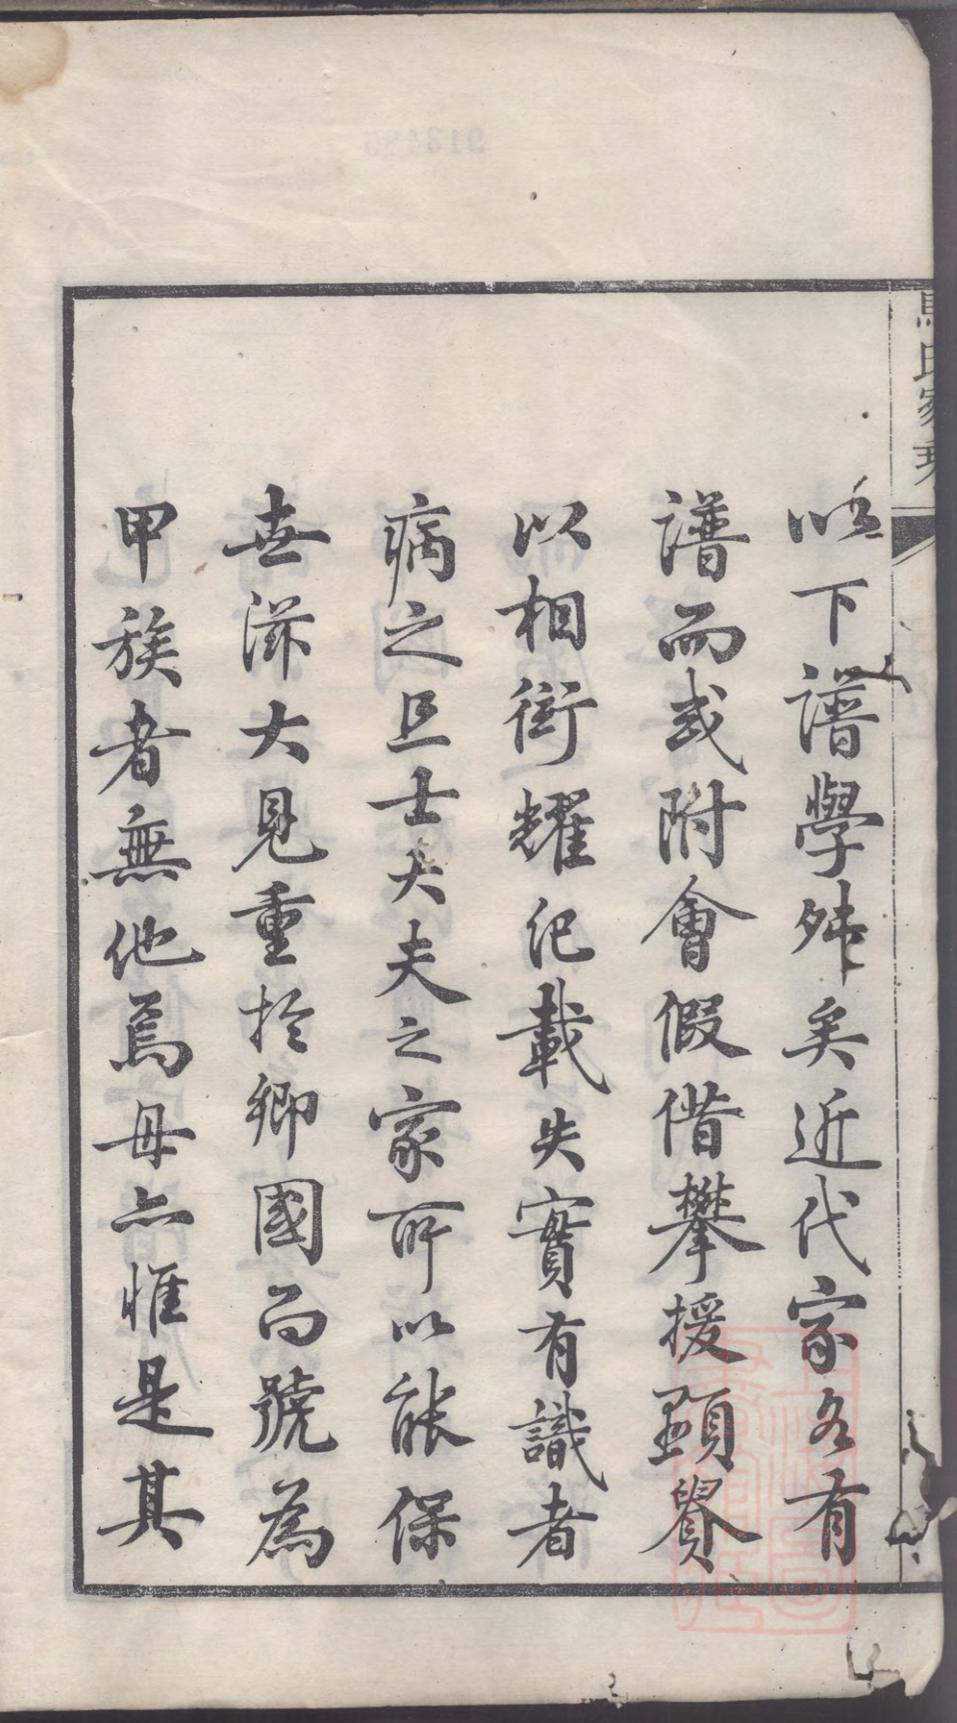 馬氏家乘
以下譜學舛矣近代家各有
譜而或附會假借攀援顯貴
以相銜耀记載失實有識者
病之且士大夫之家所以能保
世滋大見重於鄉國而號為
甲族者無他焉毋亦惟是其